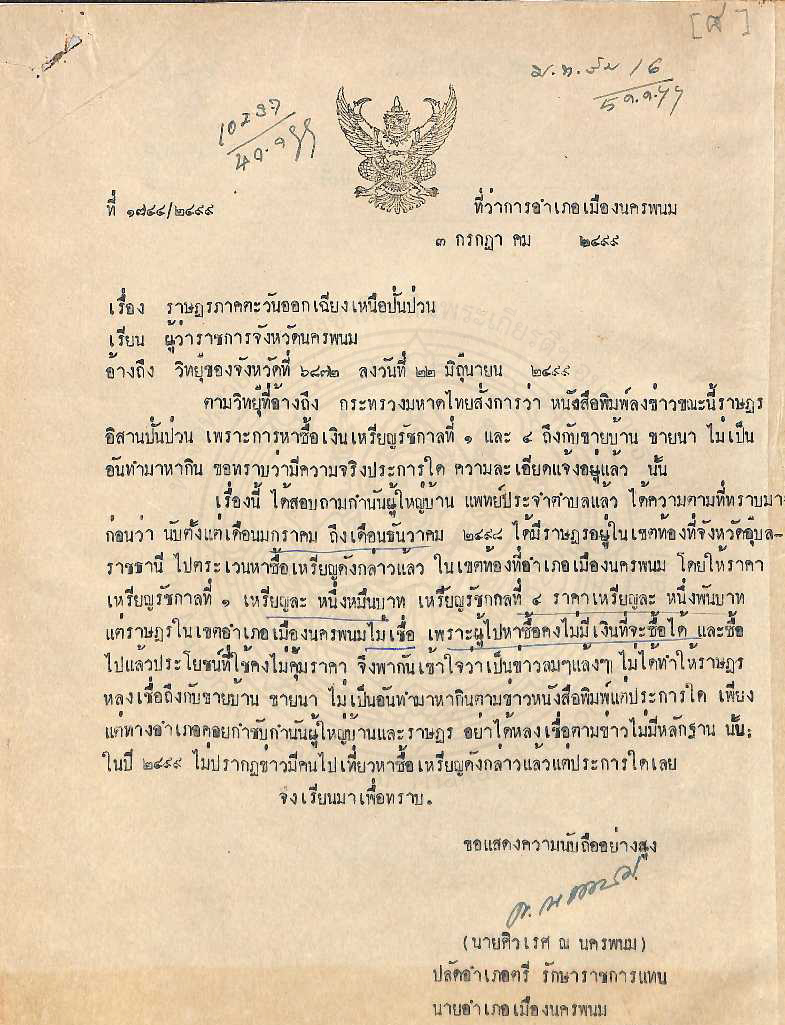 [๙]
ม.ท. รับ 16
5 ก.ค.
ที่ ๑๗๔๔/๒๔๙๙
ที่ว่าการอำเภอเมืองนครพนม
๓ กรกฎา คม ๒๔๙๙
เรื่อง ราษฎรภาคตะวันออกเฉียงเหนือปั่นป่วน
เรียน ผู้ว่าราชการจังหวัดนครพนม
อ้างถึง วิทยุของจังหวัดที่ ๖๘๓๒ ลงวันที่ ๒๒ มิถุนายน ๒๔๙๙
ตามวิทยุที่อ้างถึง กระทรวงมหาดไทยสั่งการว่า หนังสือพิมพ์ลงข่าวขณะนี้ราษฎร
อิสานปั่นป่วน เพราะการหาซื้อเงินเหรียญรัชกาลที่ ๑ และ ๔ ถึงกับขายบ้าน ขายนา ไม่เป็น
อันทำมาหากิน ขอทราบว่ามีความจริงประการใด ความละเอียดแจ้งอยู่แล้ว นั้น
เรื่องนี้ ได้สอบถามกำนันผู้ใหญ่บ้าน แพทย์ประจำตำบลแล้ว ได้ความตามที่ทราบมา
ก่อนว่า นับตั้งแต่เดือนมกราคม ถึงเดือนธันวาคม ๒๔๙๘ ได้มีราษฎรอยู่ในเขตท้องที่จังหวัดอุบล-
ราชธานี ไปตระเวนหาซื้อเหรียญดังกล่าวแล้ว ในเขตท้องที่อำเภอเมืองนครพนม โดยให้ราคา
เหรียญรัชกาลที่ ๑ เหรียญละ หนึ่งหมื่นบาท เหรียญรัชกกลที่ ๔ ราคาเหรียญละ หนึ่งพันบาท
แต่ราษฎรในเขตอำเภอเมืองนครพนมไม่เชื่อ เพราะผู้ไปหาซื้อคงไม่มีเงินที่จะซื้อได้ และซื้อ
ไปแล้วประโยชน์ที่ใช้คงไม่คุ้มราคา จึงพากันเข้าใจว่าเป็นข่าวลมๆแล้งๆ ไม่ได้ทำให้ราษฎร
หลงเชื่อถึงกับขายบ้าน ขายนา ไม่เป็นอันทำมาหากินตามข่าวหนังสือพิมพ์แต่ประการใด เพียง
แต่ทางอำเภอคอยกำชับกำนันผู้ใหญ่บ้านและราษฎร อย่าได้หลงเชื่อตามข่าวไม่มีหลักฐาน นั้น;
ในปี ๒๔๙๙ ไม่ปรากฏข่าวมีคนไปเที่ยวหาซื้อเหรียญดังกล่าวแล้วแต่ประการใดเลย
จึงเรียนมาเพื่อทราบ.
ขอแสดงความนับถืออย่างสูง
(นายศิวเรศ ณ นครพนม)
ปลัดอำเภอตรี รักษาราชการแทน
นายอำเภอเมืองนครพนม